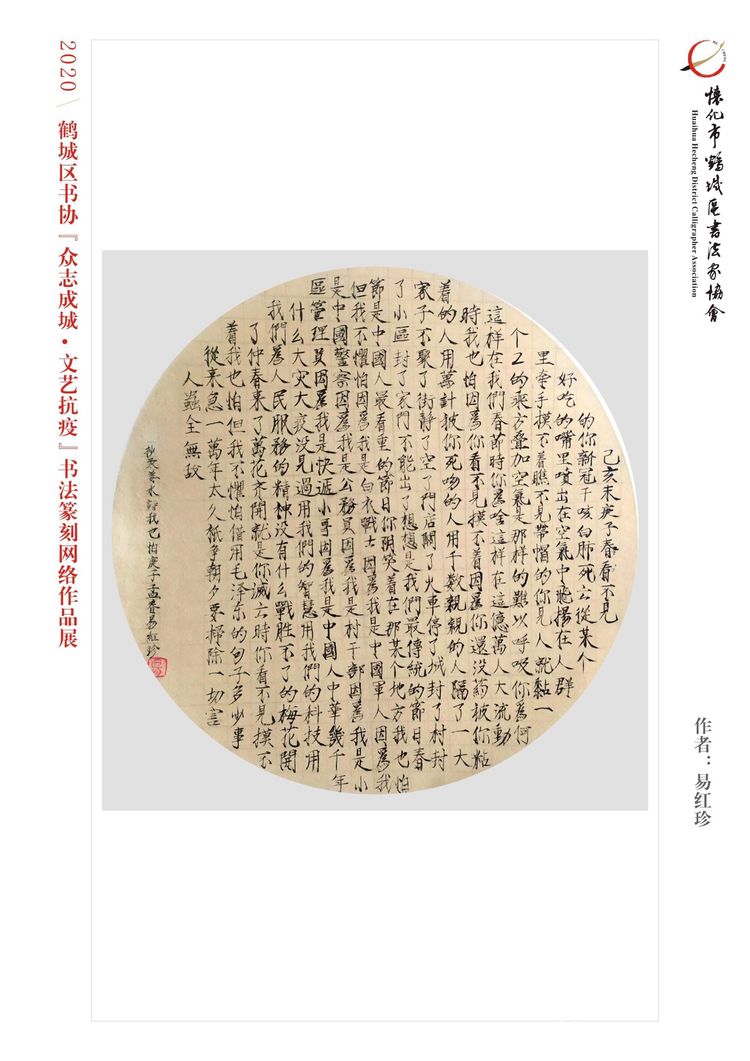 懷化市鶴城區書法家協會
Huaihua Hecheng District Calligrapher Association
己亥末庚子春看不見
的你新冠干咳白肺死亡從某个
好吃的嘴里噴出在空氣中飛揚在人群
里牵手摸不着瞧不見帶帽的你見人就黏一
个2的乘方叠加空氣是那样的難以呼吸你為何
這样在我們春節時你為啥這样在這億萬人大流動
時我也怕因為你看不見摸不着因為你還没药被你粘
着的人用萬計被你死吻的人用千数親親的人隔了一大
家子不聚了街静了空了門店關了火車停了城封了村封
了小區封了家門不能出了想想是我們最傳统的節日春
節是中國人最看重的節日你阴笑着在那某个地方我也怕
但我不懼怕因為我是白衣戰士因為我是中國軍人因為我
是中國警察因為我是公務員因為我是村干部因為我是小
區管理員因為我是快遞小哥因為我是中國人中華幾千年
什么大灾大疫没見過用我們的智慧用我們的科技用
我們為人民服務的精神没有什么戰胜不了的梅花開
了仲春来了萬花齐開就是你滅亡時你看不見摸不
着我也怕但我不懼怕借用毛泽东的句子多少事
從来急一萬年太久祇争朝夕要掃除一切害
人蟲全無敌
詩我也怕庚子孟春易红珍
2020 \ 鹤城区书协『众志成城·文艺抗疫』书法篆刻网络作品展
作者：易红珍